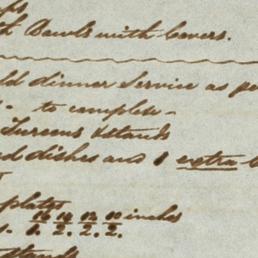 Bowls with Covers.
dinner Service as pe
- to complete -
Tureens & Stands
dishes and 1 extra
plates
16 14 12 10 inches
1. 2. 2. 2.
stands